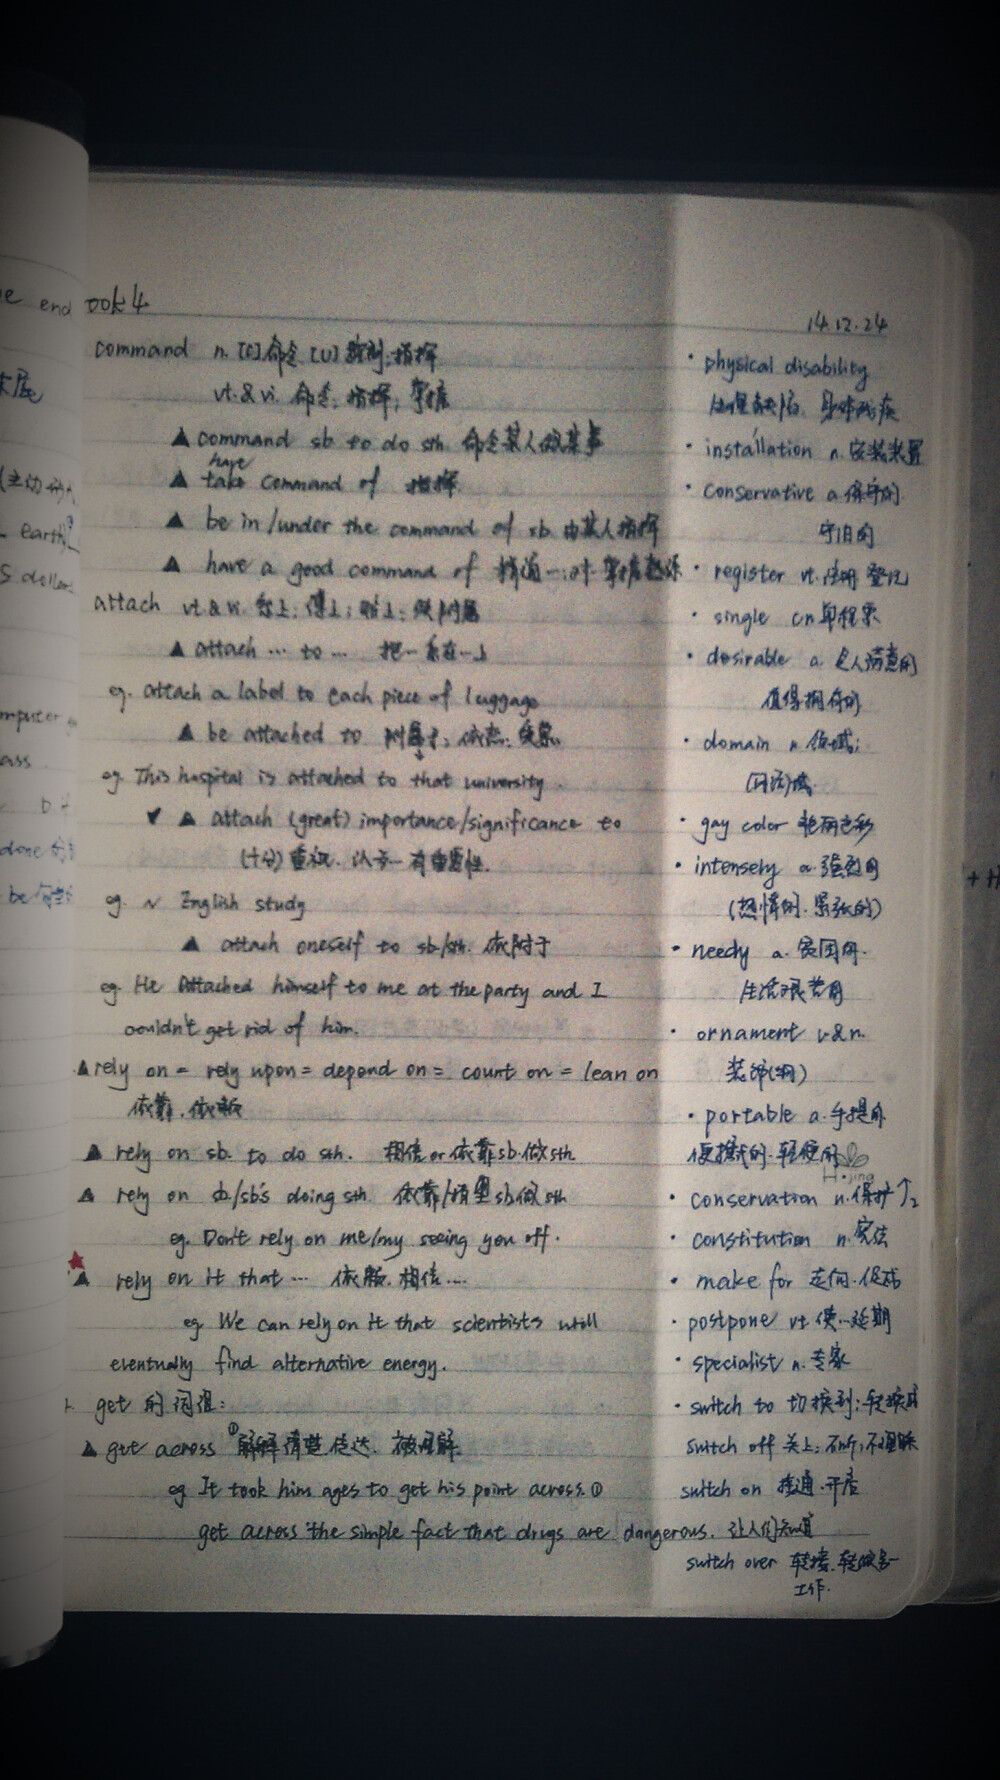 ook 4
14.12.24
command n. [C]命令 [U] 控制;指挥
vt.&vi. 命令;指挥;掌握
▲ command sb to do sth. 命令某人做某事
have
▲ take command of 指挥
▲ be in/under the command of sb. 由某人指挥
▲ have a good command of 精通…;对…掌握
attach vt&vi. 系上;缚上;贴上;使附属
▲ attach … to … 把…系在…上
eg. attach a label to each piece of luggage
▲ be attached to 附属于;依恋;
eg. This hospital is attached to that university.
▲ attach (great) importance/significance to
(十分)重视. 认为…有重要性.
eg. ~ English study
▲ attach oneself to sb/sth. 依附于
eg. He attached himself to me at the party and I
couldn't get rid of him.
▲rely on = rely upon = depend on = count on = lean on
依靠.依赖
▲ rely on sb. to do sth. 相信or依靠sb.做sth.
▲ rely on sb/sb's doing sth. 依靠/指望sb做sth
eg. Don't rely on me/my seeing you off.
▲ rely on it that … 依赖.相信…
eg. We can rely on it that scientists will
eventually find alternative energy.
get 的词组:
▲ get across ①解释清楚.传达. 被理解
eg It took him ages to get his point across.①
get across the simple fact that drugs are dangerous. 让人们知道
· physical disability
生理缺陷. 身体残疾
· installation n.安装.装置
· conservative a.保守的
守旧的
· register vt.注册 登记
· single cn.单程票
· desirable a. 令人满意的
值得拥有的
· domain n.领域;
(网络)域.
· gay color 艳丽色彩
· intensely a.强烈的
(热情的.紧张的)
· needy a. 贫困的.
生活艰苦的
· ornament v&n.
装饰(物)
· portable a.手提的
便携式的.轻便的
H·jing
· conservation n.保护
· constitution n.宪法
· make for 走向.促成
· postpone vt.使…延期
· specialist n.专家
· switch to 切换到;转换成
switch off 关上;不听;不理睬
switch on 接通.开启
switch over 转接.转做另一
工作.
e end
earth
S dollar
mputer
ass
done
be